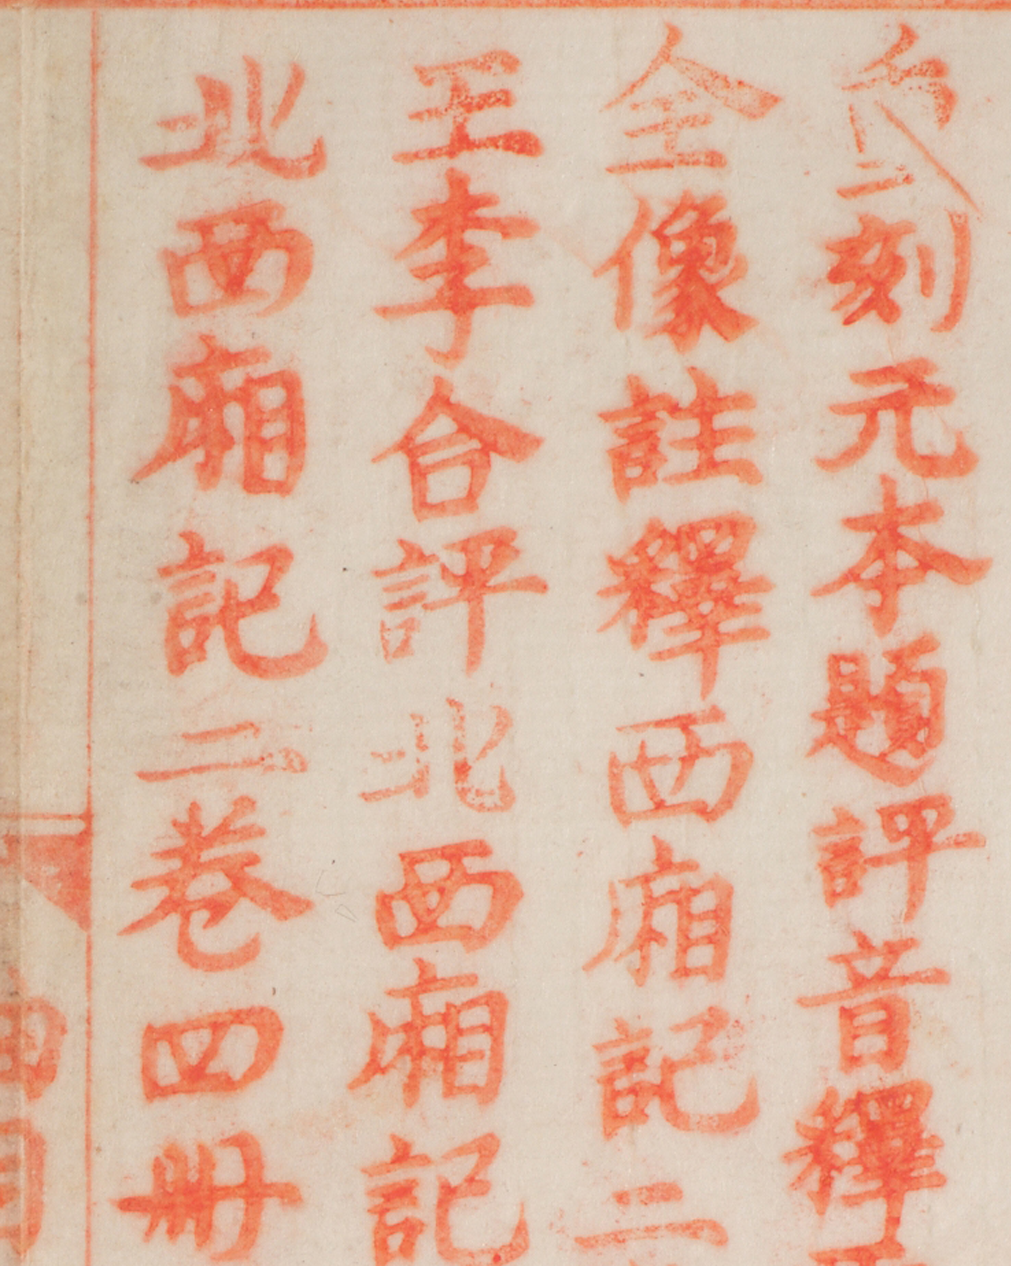 二刻元本題評音釋西
全像註釋西廂記二
王李合評北西廂記
北西廂記二卷四冊